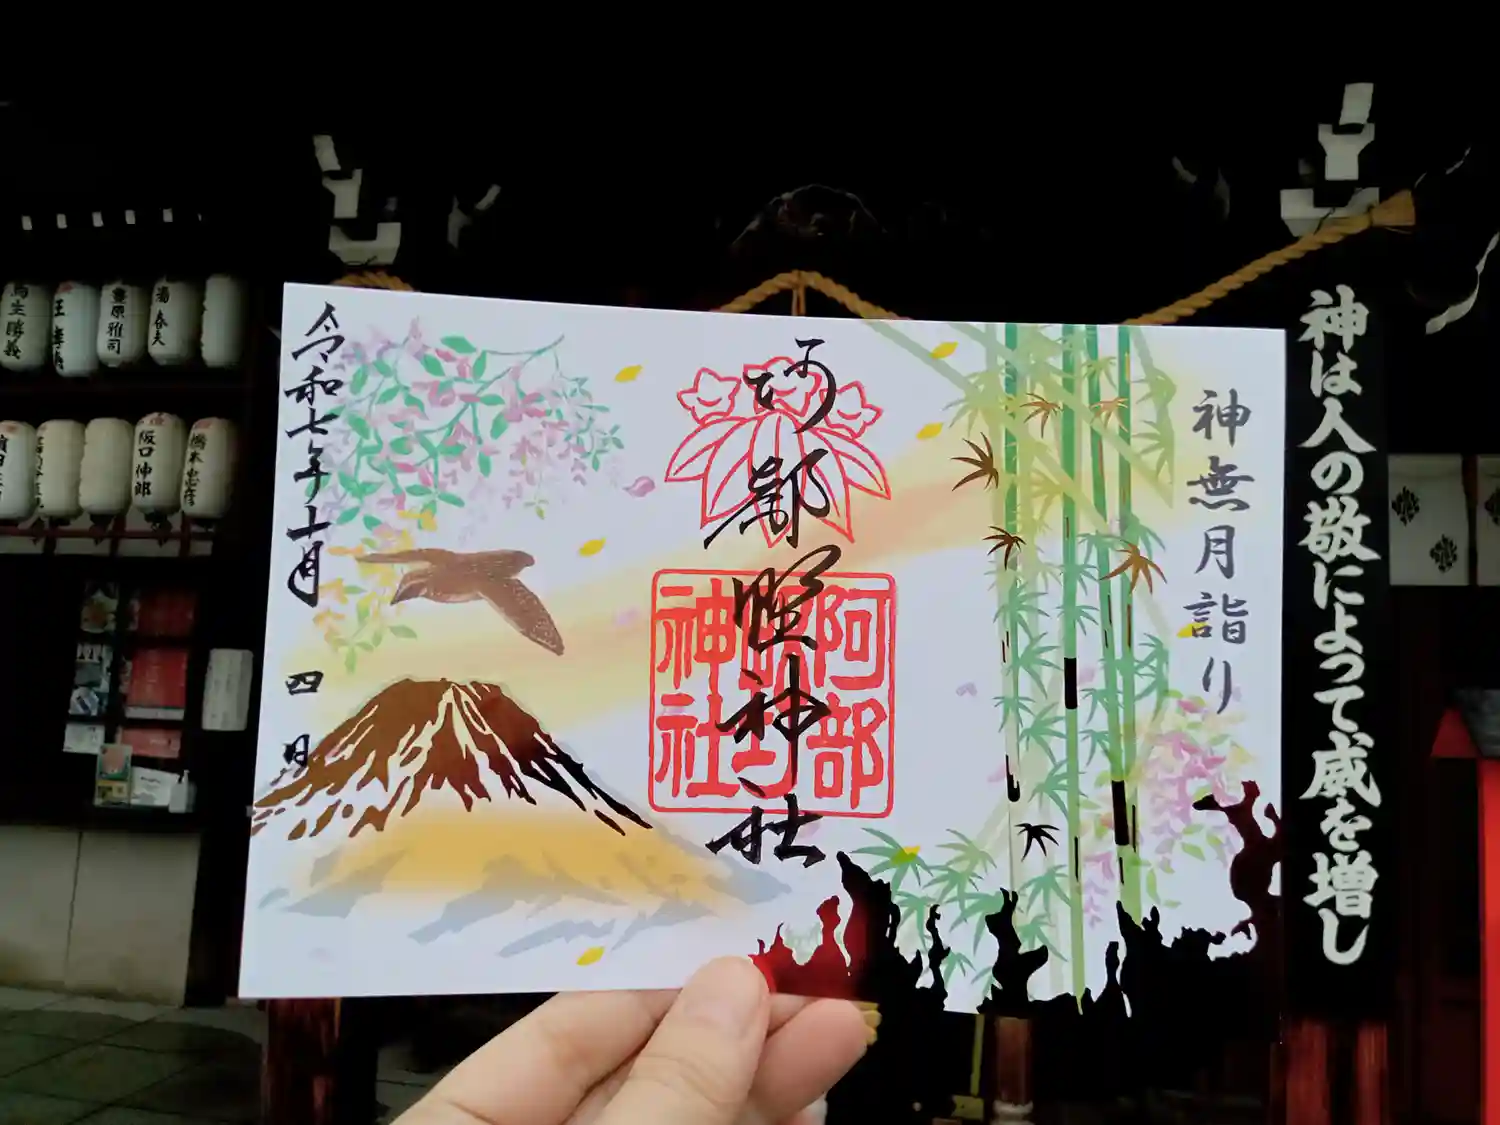 神は人の敬によって威を増し
神無月詣り
阿部野神社
阿部野神社
令和七年十月 四日
湯 春夫
豊原雅司
阪口伸郎